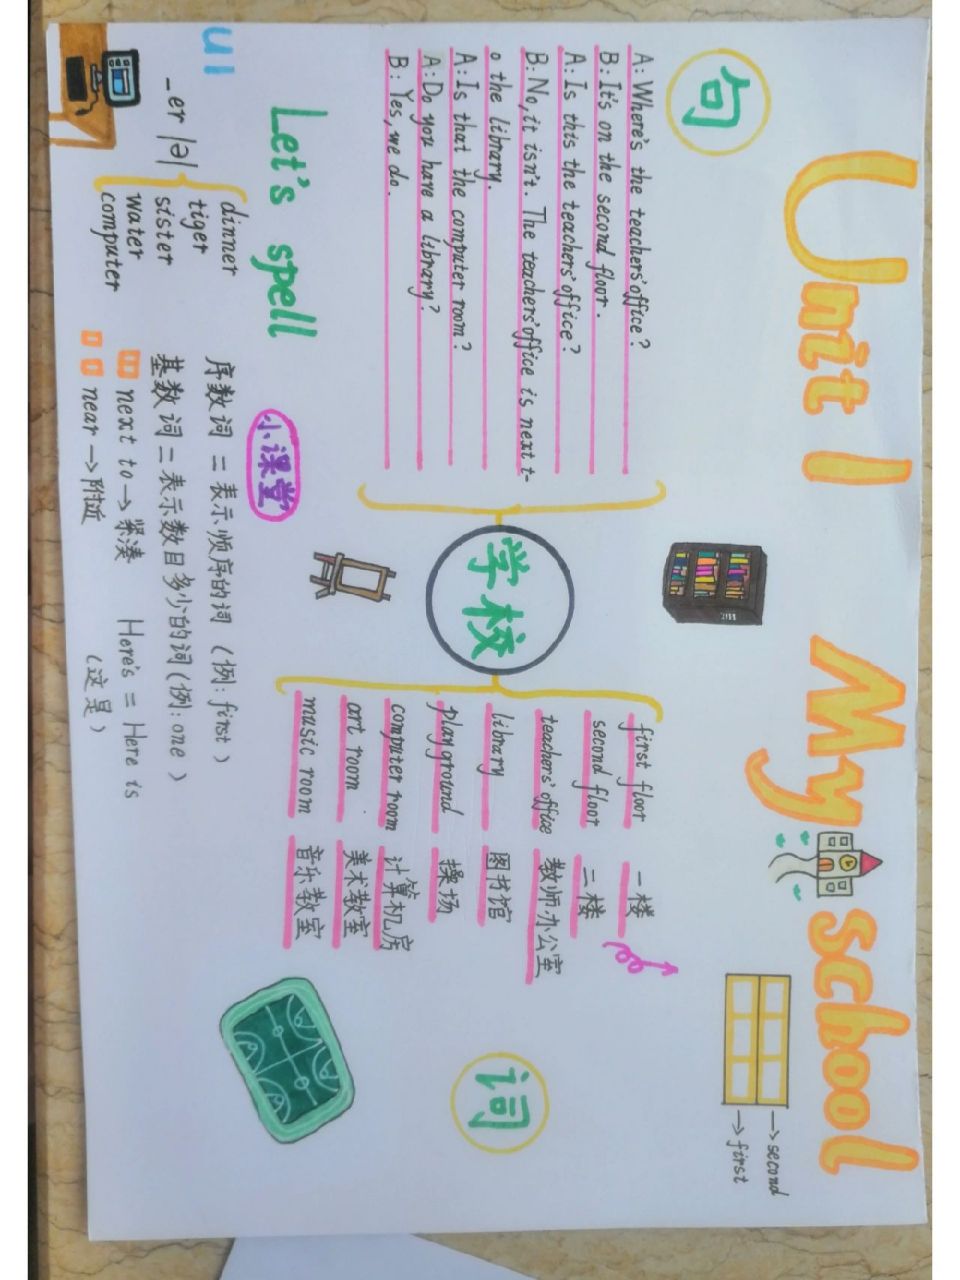 Unit 1 My school
句
A: Where's the teachers' office?
B: It's on the second floor.
A: Is this the teachers' office?
B: No, it isn't. The teachers' office is next t-
o the library.
A: Is that the computer room?
A: Do you have a library?
B: Yes, we do.
学校
first floor 一楼
second floor 二楼
teachers' office 教师办公室
library 图书馆
playground 操场
computer room 计算机房
art room 美术教室
music room 音乐教室
→second
→first
词
Let's spell
U1
-er |ə|
dinner
tiger
sister
water
computer
小课堂
序数词 = 表示顺序的词 (例: first)
基数词 = 表示数目多少的词 (例: one)
next to → 紧凑 Here's = Here is
near → 附近 (这是)